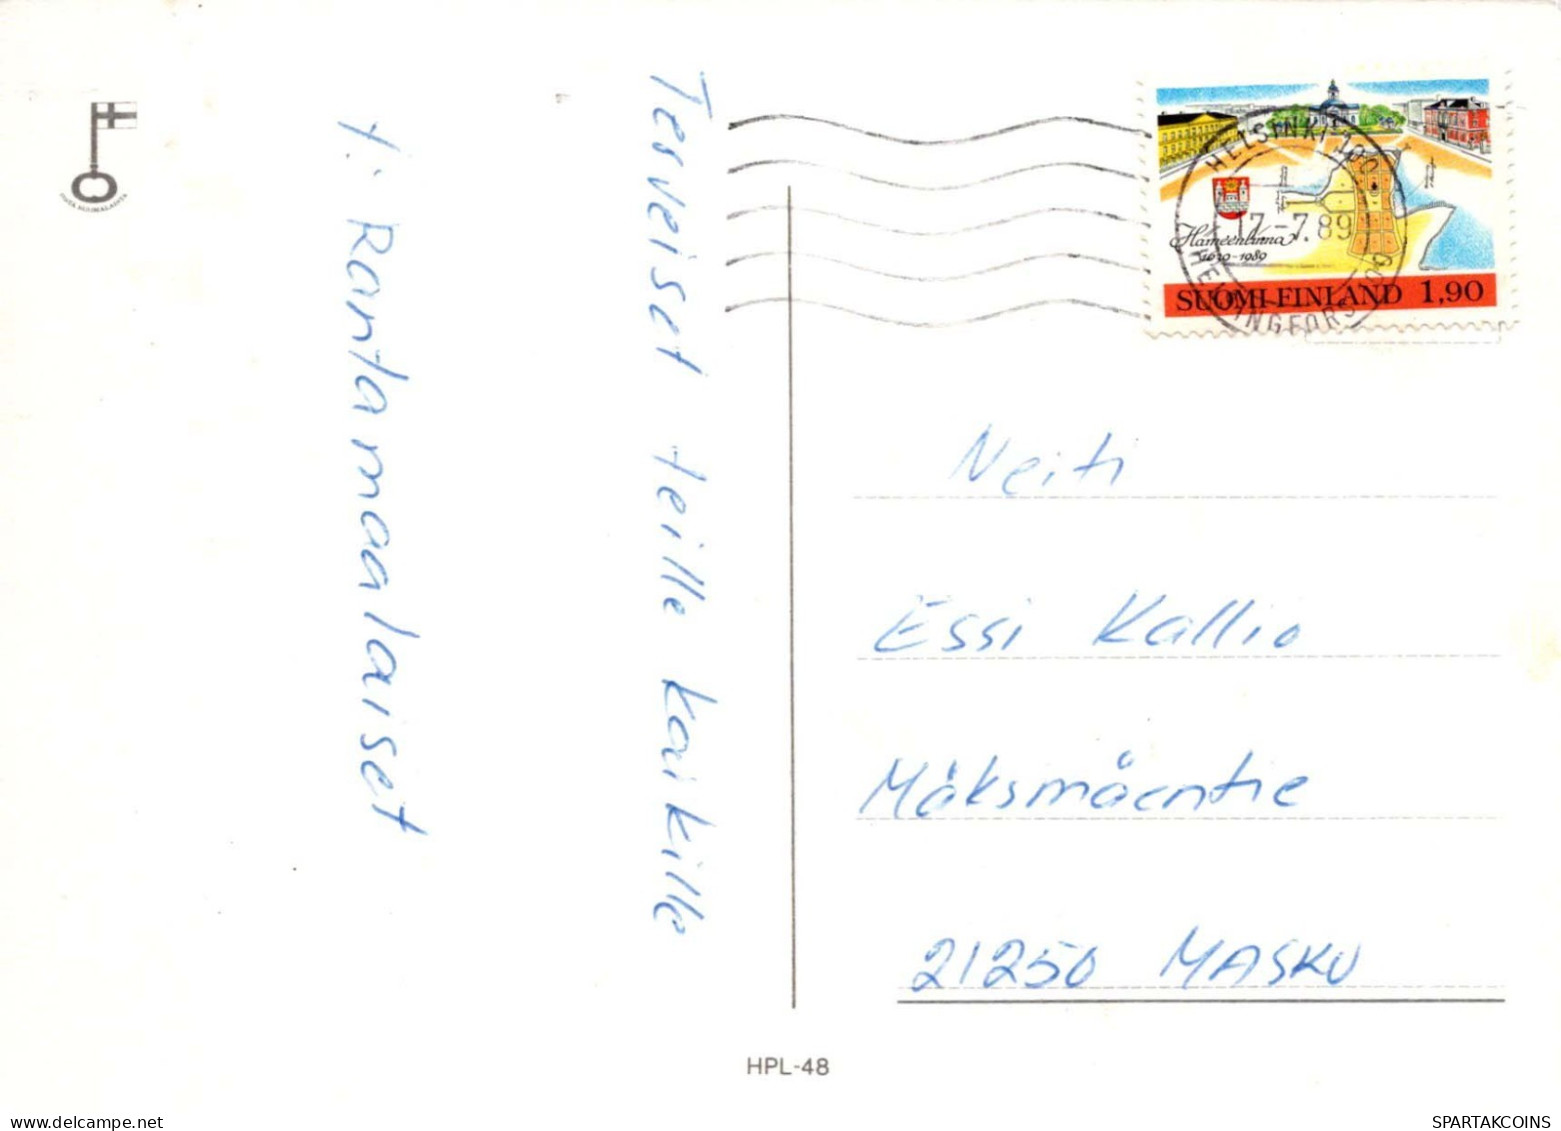 Terveiset teille kaikille
t: Rantamaalaiset
HELSINKI 100
17.-7.89
HELSINGFORS 100
Hämeenlinna
1639-1989
SUOMI-FINLAND 1,90
Neiti
Essi Kallio
Mäksmäentie
21250 MASKU
HPL-48
delcampe.net
SPARTAKCOINS